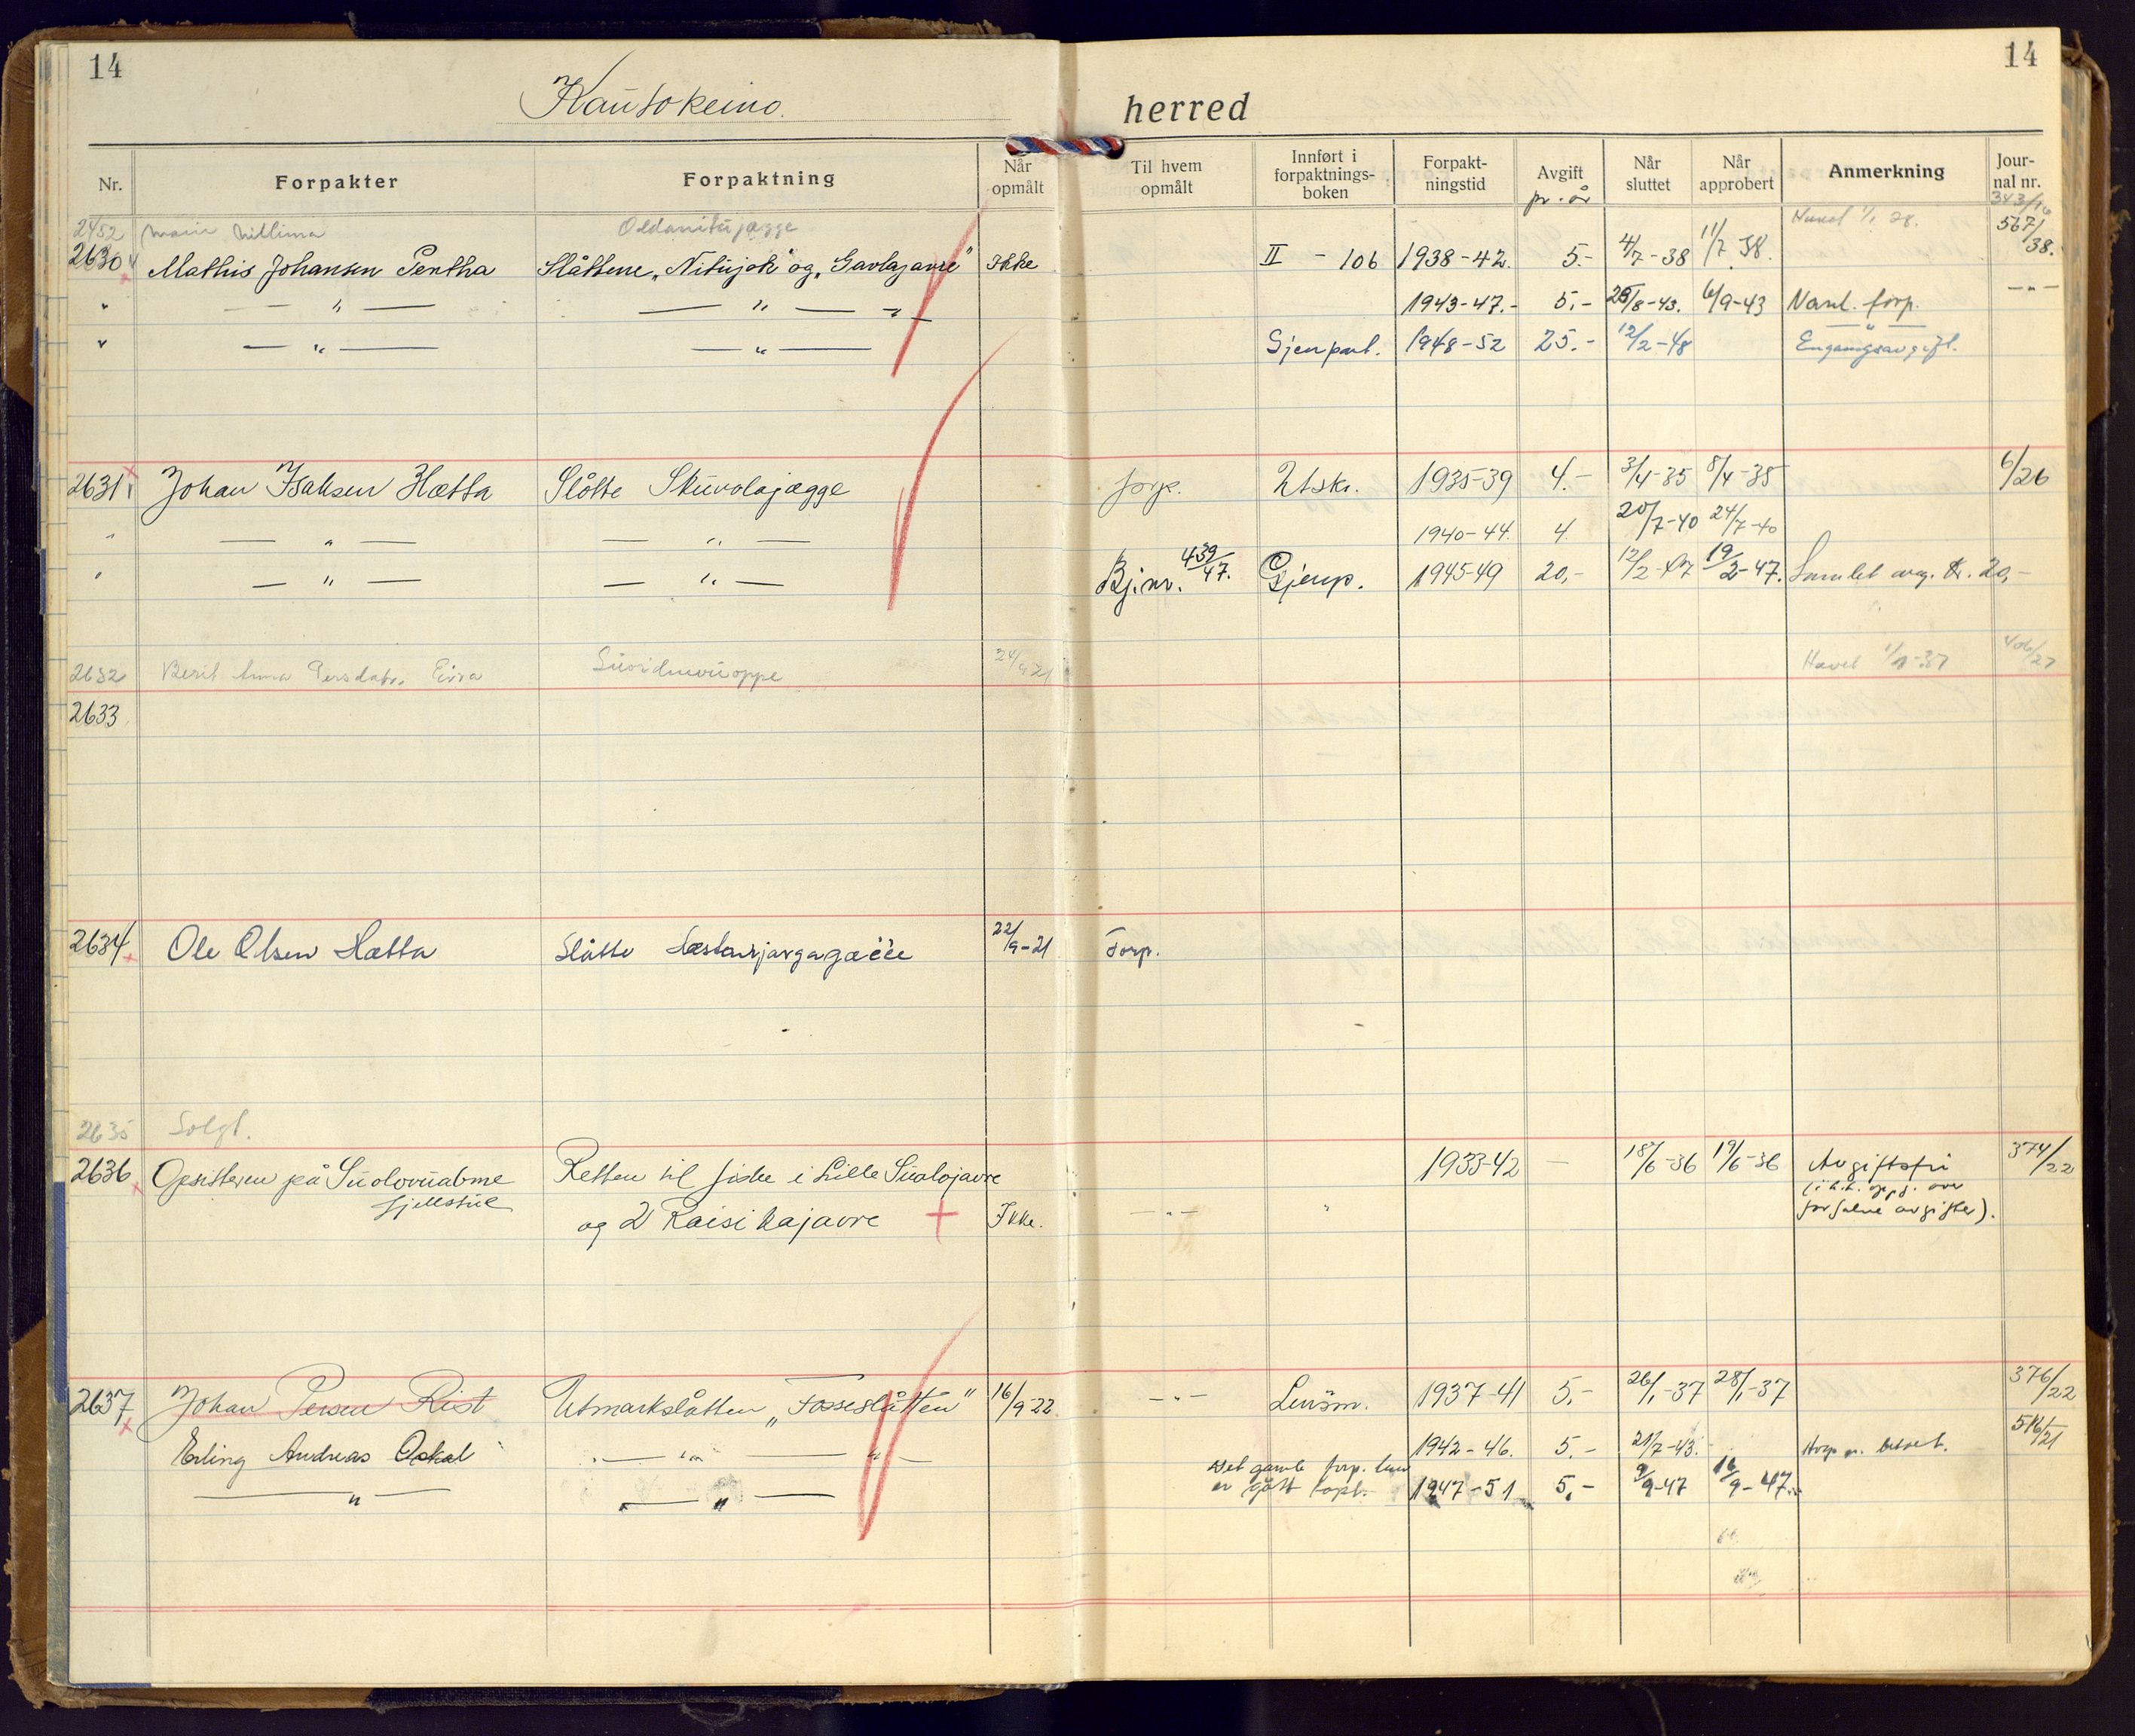 14
14
Kautokeino.
herred
Nr.
Forpakter
Forpaktning
Når opmålt
Til hvem opmålt
Innført i forpaktnings-boken
Forpakt-ningstid
Avgift pr. år
Når sluttet
Når approbert
Anmerkning
Jour-nal nr.
2452 343/16
2630 Mathis Johansen Pentha Slåttene „Nitujok" og „Gavlajavre" Ikke II - 106 1938-42. 5.- 4/7-38 11/7 38. 567/38.
" — " — — " — " — 1943-47.- 5.- 25/8-43. 6/9-43 Vanl. forp. — " —
" — " — — " — Gjenpart. 1948-52 25.- 12/2-48 — " — Engangsavgift.
2631 Johan Isaksen Hætta Slåtte Stuvolajægge forp. Utskr. 1935-39 4.- 3/4-35 8/4-35 6/26
" — " — — " — 1940-44. 4. 20/7-40 24/7-40
" — " — — " — Bj.nr. 439/47. Gjenp. 1945-49 20,- 12/2-47 19/2-47. Samlet avg. kr. 20,-
2632 Berit Anna Persdatr. Eira Suoidnevuoppe 24/9 21 Hevet 1/1-37 406/27
2633
2634 Ole Olsen Hætta Slåtte 22/9-21 Forp.
2635 Solgt.
2636 Opsitteren på Suolovuobme Retten til fiske i Lille Suolojavre 1933-42 — 18/6-36 19/6-36 Avgiftsfri 374/22
fjellstue og 2 Raisikajavre Ikke. — " — " avgifter).
2637 Johan Persen Rist Utmarkslåtten „Fosseslåtten" 16/9-22 — " — Lensm. 1937-41 5,- 26/1-37 28/1-37 376/22
Erling Andreas Oskal — " — " — 1942-46. 5,- 21/7-43. 516/21
— " — — " — Det gamle forp. er gått tapt. 1947-51 5,- 9/9-47 16/9-47.